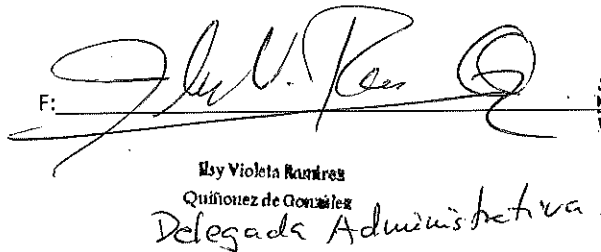 F:
Violeta Ramirez
Quiñonez de González
Delegada Administrativa